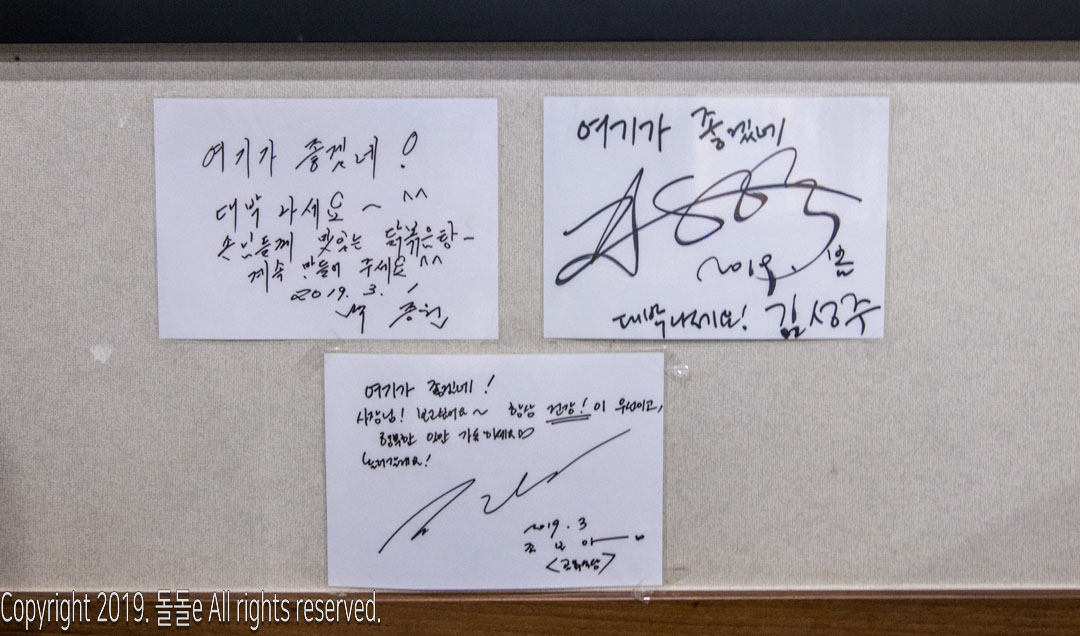 여기가 좋겠네!
대박 나세요~ ^^
손님들께 맛있는 닭볶음탕~
계속 만들어 주세요^^
2019. 3. 1
백종원
여기가 좋겠네
2019.
대박나세요! 김성주
여기가 좋겠네!
사장님! 보고싶어요~ 항상 건강!이 우선이고,
행복한 일만 가득하세요♡
또 올게요!
2019. 3
조보아
<골목식당>
Copyright 2019. 돌돌e All rights reserved.